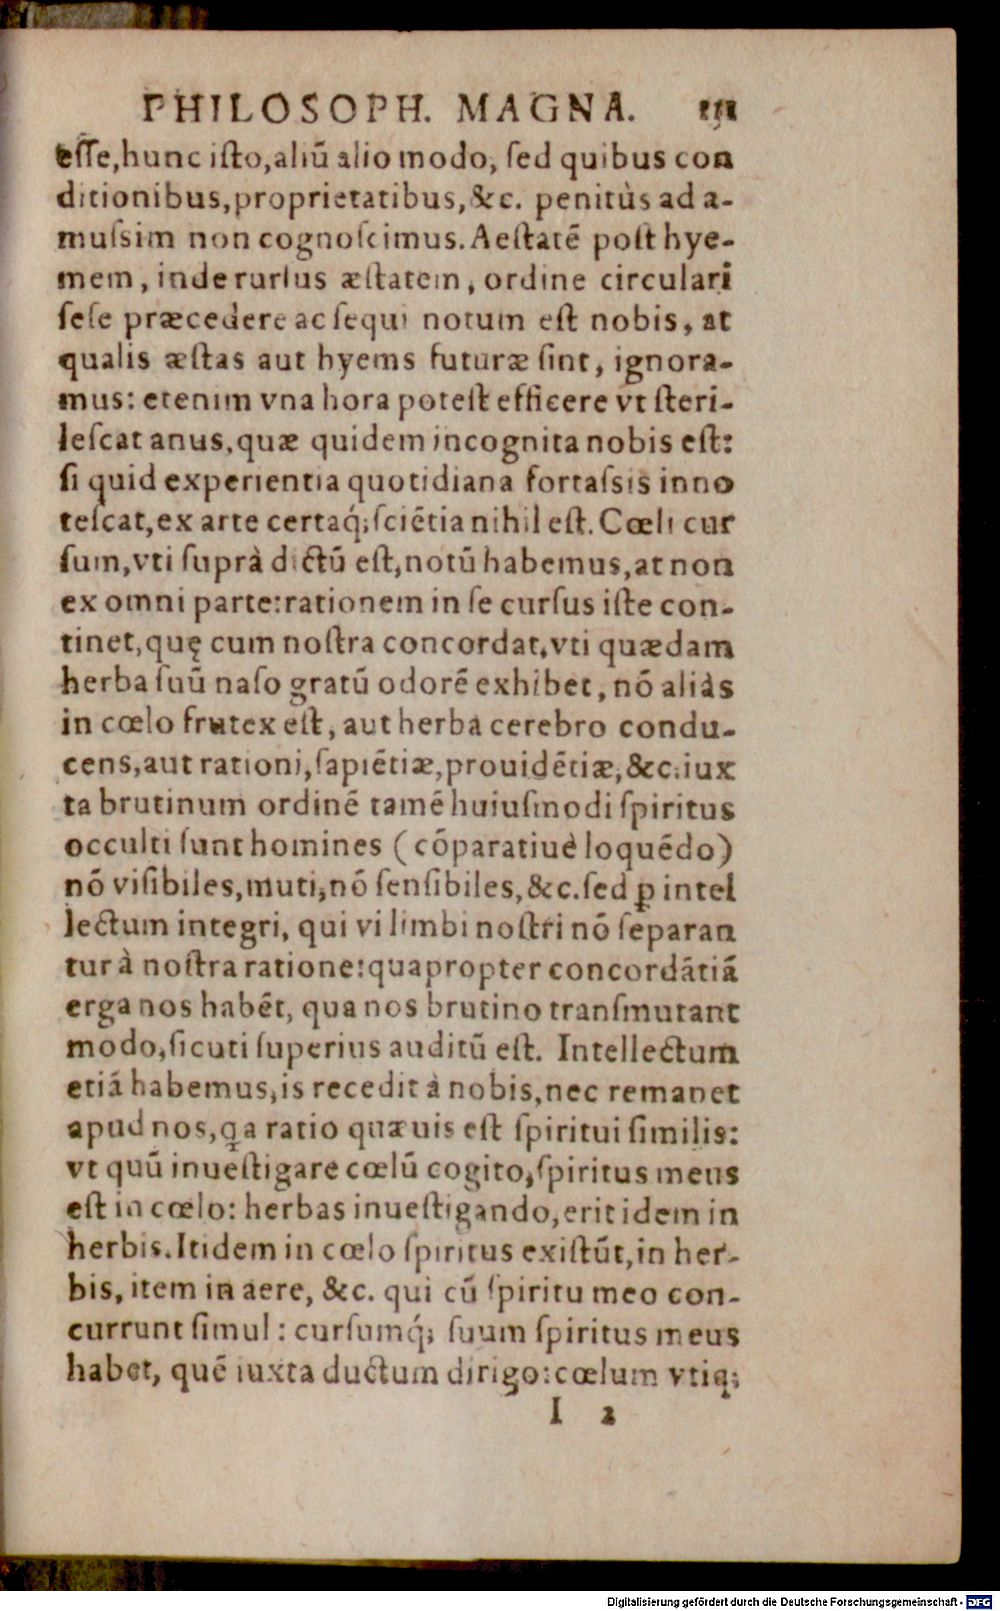 PHILOSOPH. MAGNA.
esse, hunc isto, aliū alio modo, sed quibus con
ditionibus, proprietatibus, &c. penitùs ad a-
mussim non cognoscimus. Aestatē post hye-
mem, inde rursus æstatem, ordine circulari
sese præcedere ac sequi notum est nobis, at
qualis æstas aut hyems futuræ sint, ignora-
mus: etenim vna hora potest efficere vt steri-
lescat anus, quæ quidem incognita nobis est:
si quid experientia quotidiana fortassis inno
tescat, ex arte certaq́; sciētia nihil est. Cœli cur
sum, vti suprà dictū est, notū habemus, at non
ex omni parte: rationem in se cursus iste con-
tinet, quę cum nostra concordat, vti quædam
herba suū naso gratū odorē exhibet, nō aliàs
in cœlo frutex est, aut herba cerebro condu-
cens, aut rationi, sapiētiæ, prouidētiæ, &c. iux
ta brutinum ordinē tamē huiusmodi spiritus
occulti sunt homines (cōparatiuè loquēdo)
nō visibiles, muti, nō sensibiles, &c. sed ꝑ intel
lectum integri, qui vi limbi nostri nō separan
tur à nostra ratione: quapropter concordātiā
erga nos habēt, qua nos brutino transmutant
modo, sicuti superius auditū est. Intellectum
etiā habemus, is recedit à nobis, nec remanet
apud nos, q̨a ratio quæuis est spiritui similis:
vt quū inuestigare cœlū cogito, spiritus meus
est in cœlo: herbas inuestigando, erit idem in
herbis. Itidem in cœlo spiritus existūt, in her-
bis, item in aere, &c. qui cū spiritu meo con-
currunt simul: cursumq́; suum spiritus meus
habet, quē iuxta ductum dirigo: cœlum vtiq;
I 2
Digitalisierung gefördert durch die Deutsche Forschungsgemeinschaft - DFG